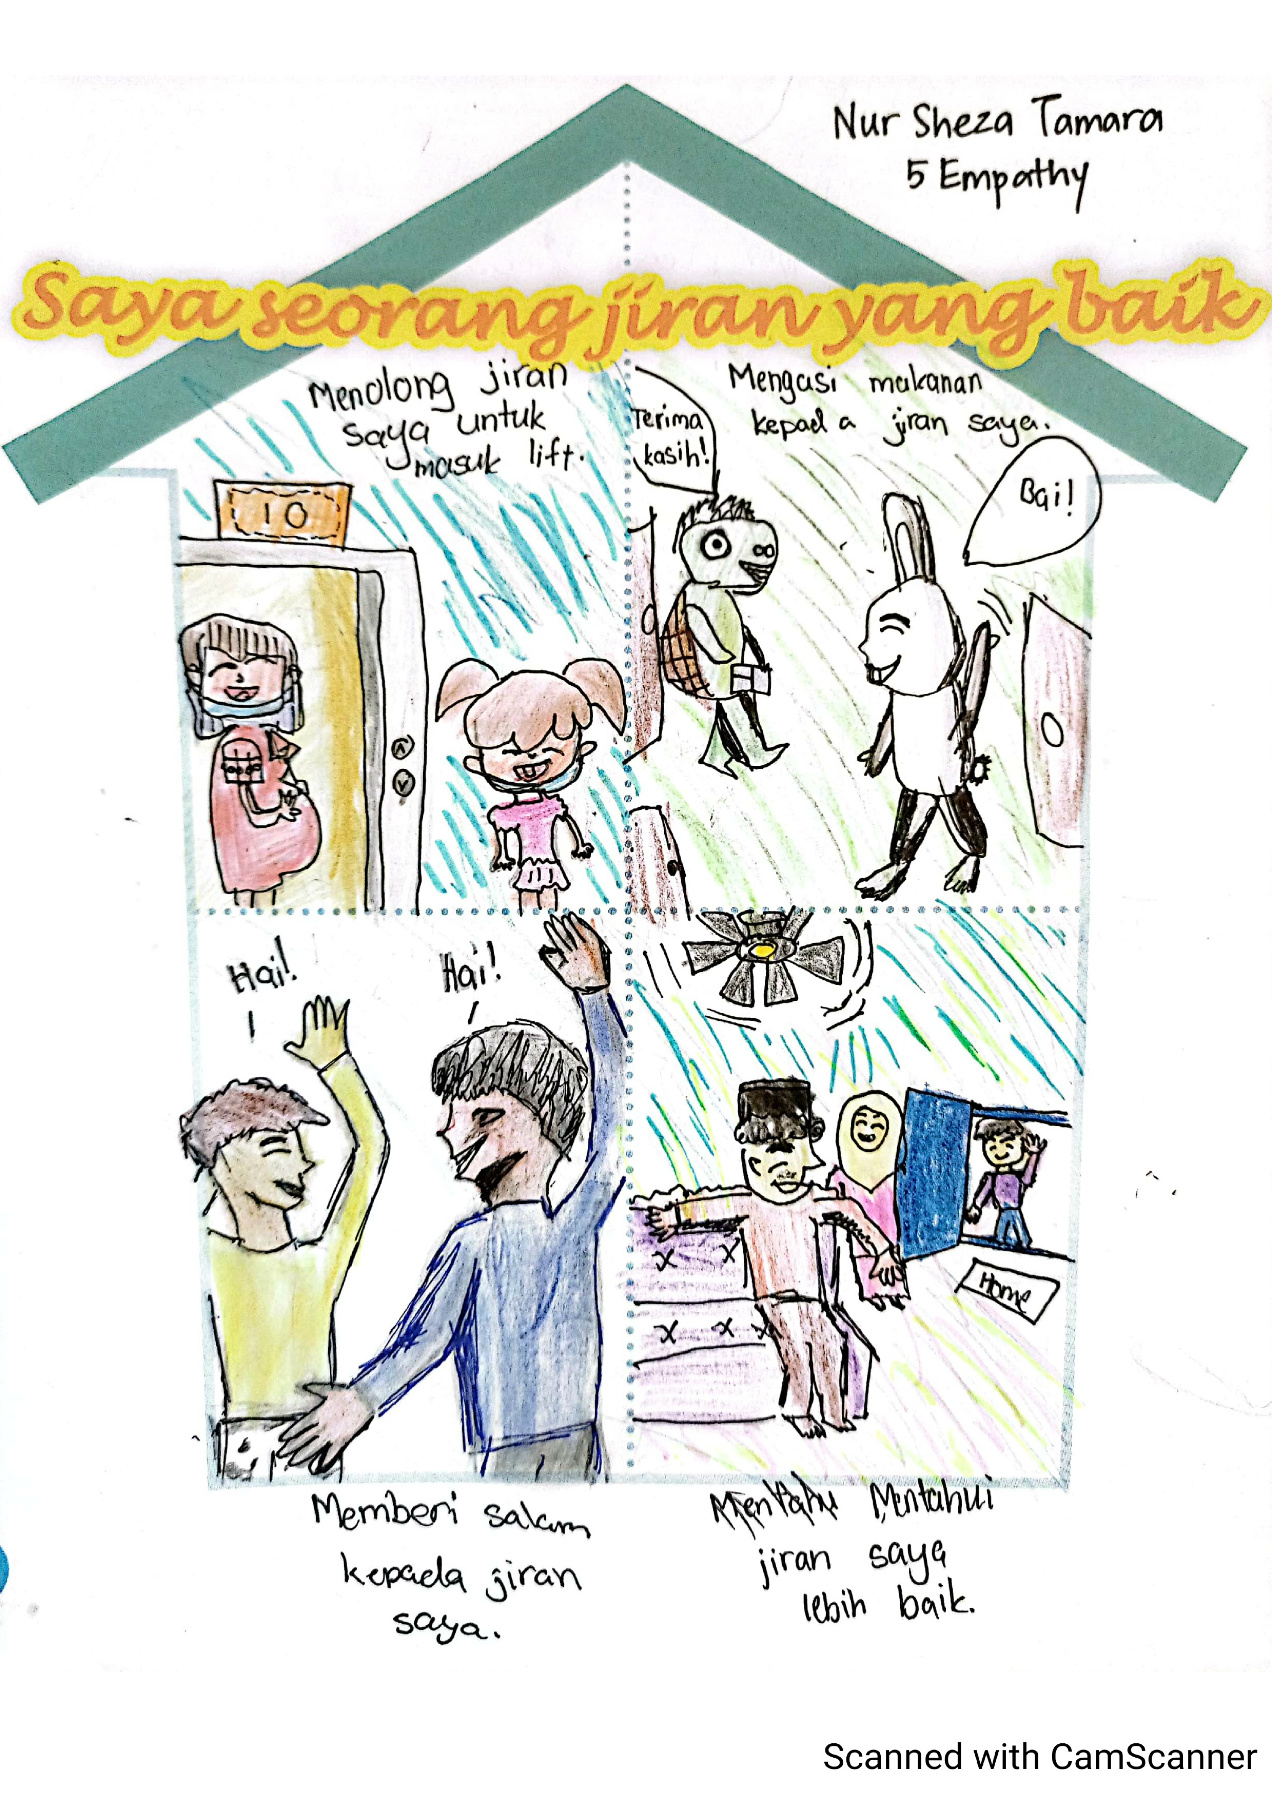 Nur Sheza Tamara
5 Empathy
Saya seorang jiran yang baik
Menolong jiran
saya untuk
masuk lift.
10
Terima
kasih!
Mengasi makanan
kepada jiran saya.
Bai!
Hai!
Hai!
Home
Memberi salam
kepada jiran
saya.
Mentahui
jiran saya
lebih baik.
Scanned with CamScanner